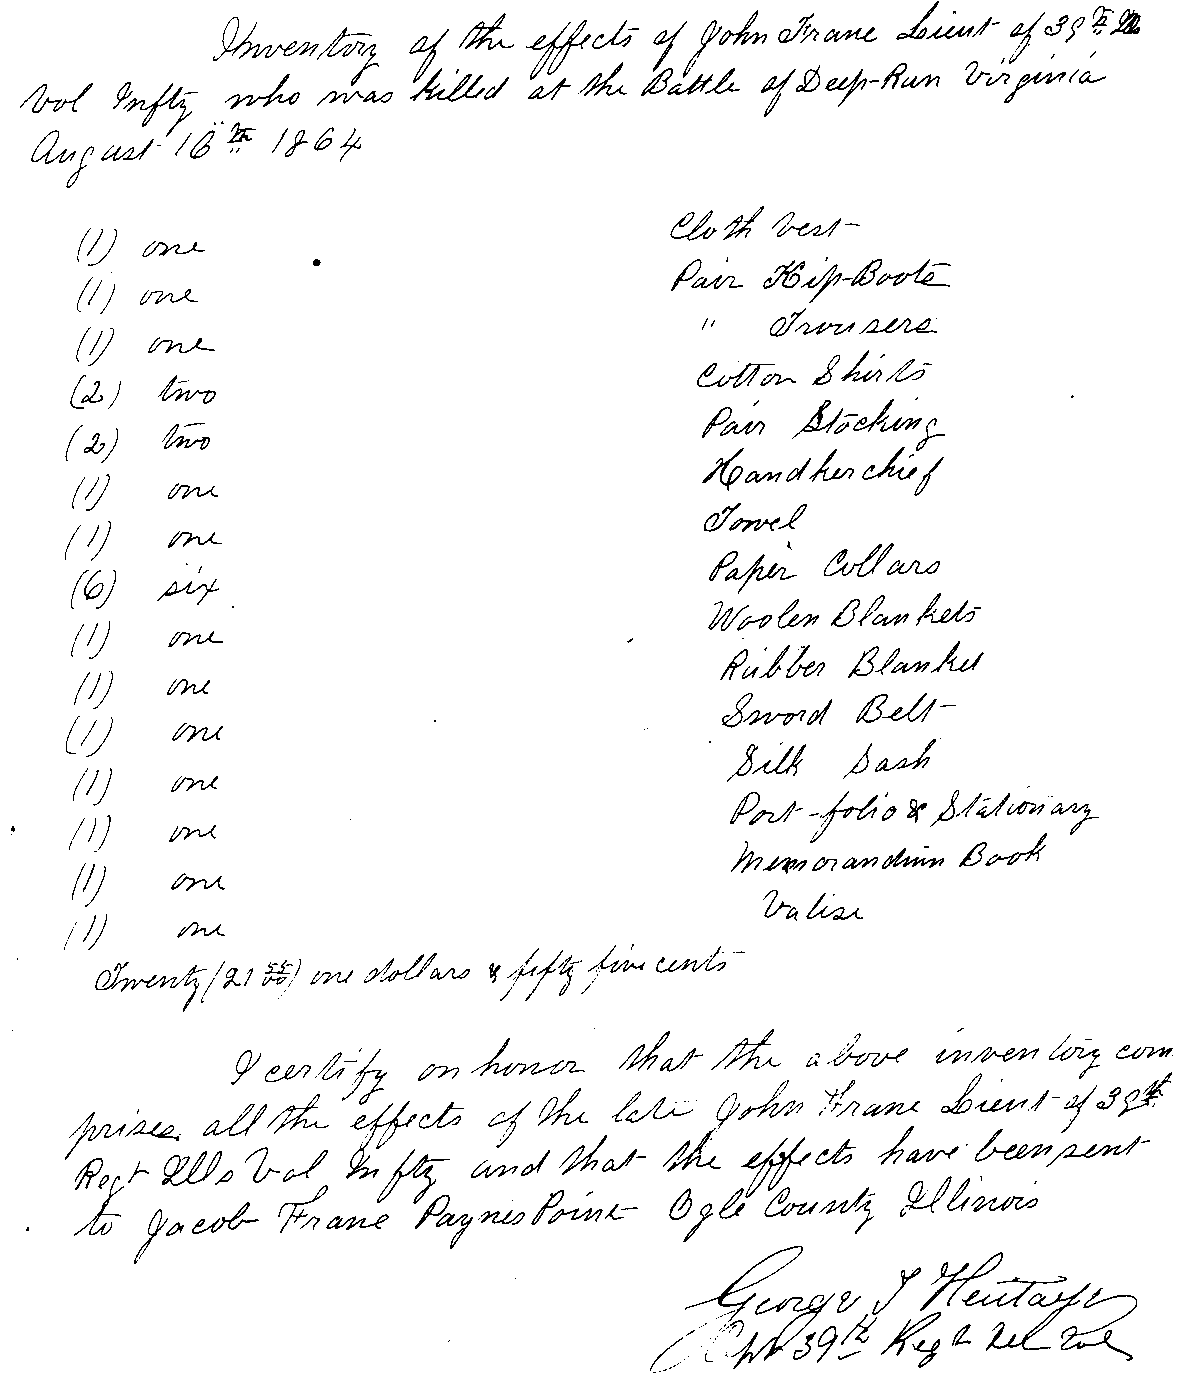 Inventory of the effects of John Frane Lieut of 39th Ills
Vol Infty who was killed at the Battle of Deep-Run Virginia
August 16th 1864
(1) one Cloth Vest
(1) one Pair Hip-Boots
(1) one " Trousers
(2) two Cotton Shirts
(2) two Pair Stocking
(1) one Handkerchief
(1) one Towel
(6) six Paper Collars
(1) one Woolen Blankets
(1) one Rubber Blanket
(1) one Sword Belt
(1) one Silk Sash
(1) one Port-folio & Stationary
(1) one Memorandum Book
(1) one Valise
Twenty (21 55/00) one dollars & fifty five cents
I certify on honor that the above inventory com
prises all the effects of the late John Frane Lieut of 39th
Regt Ills Vol Infty and that the effects have been sent
to Jacob Frane Paynes Point Ogle County Illinois
George T
39th Regt Ill Vol